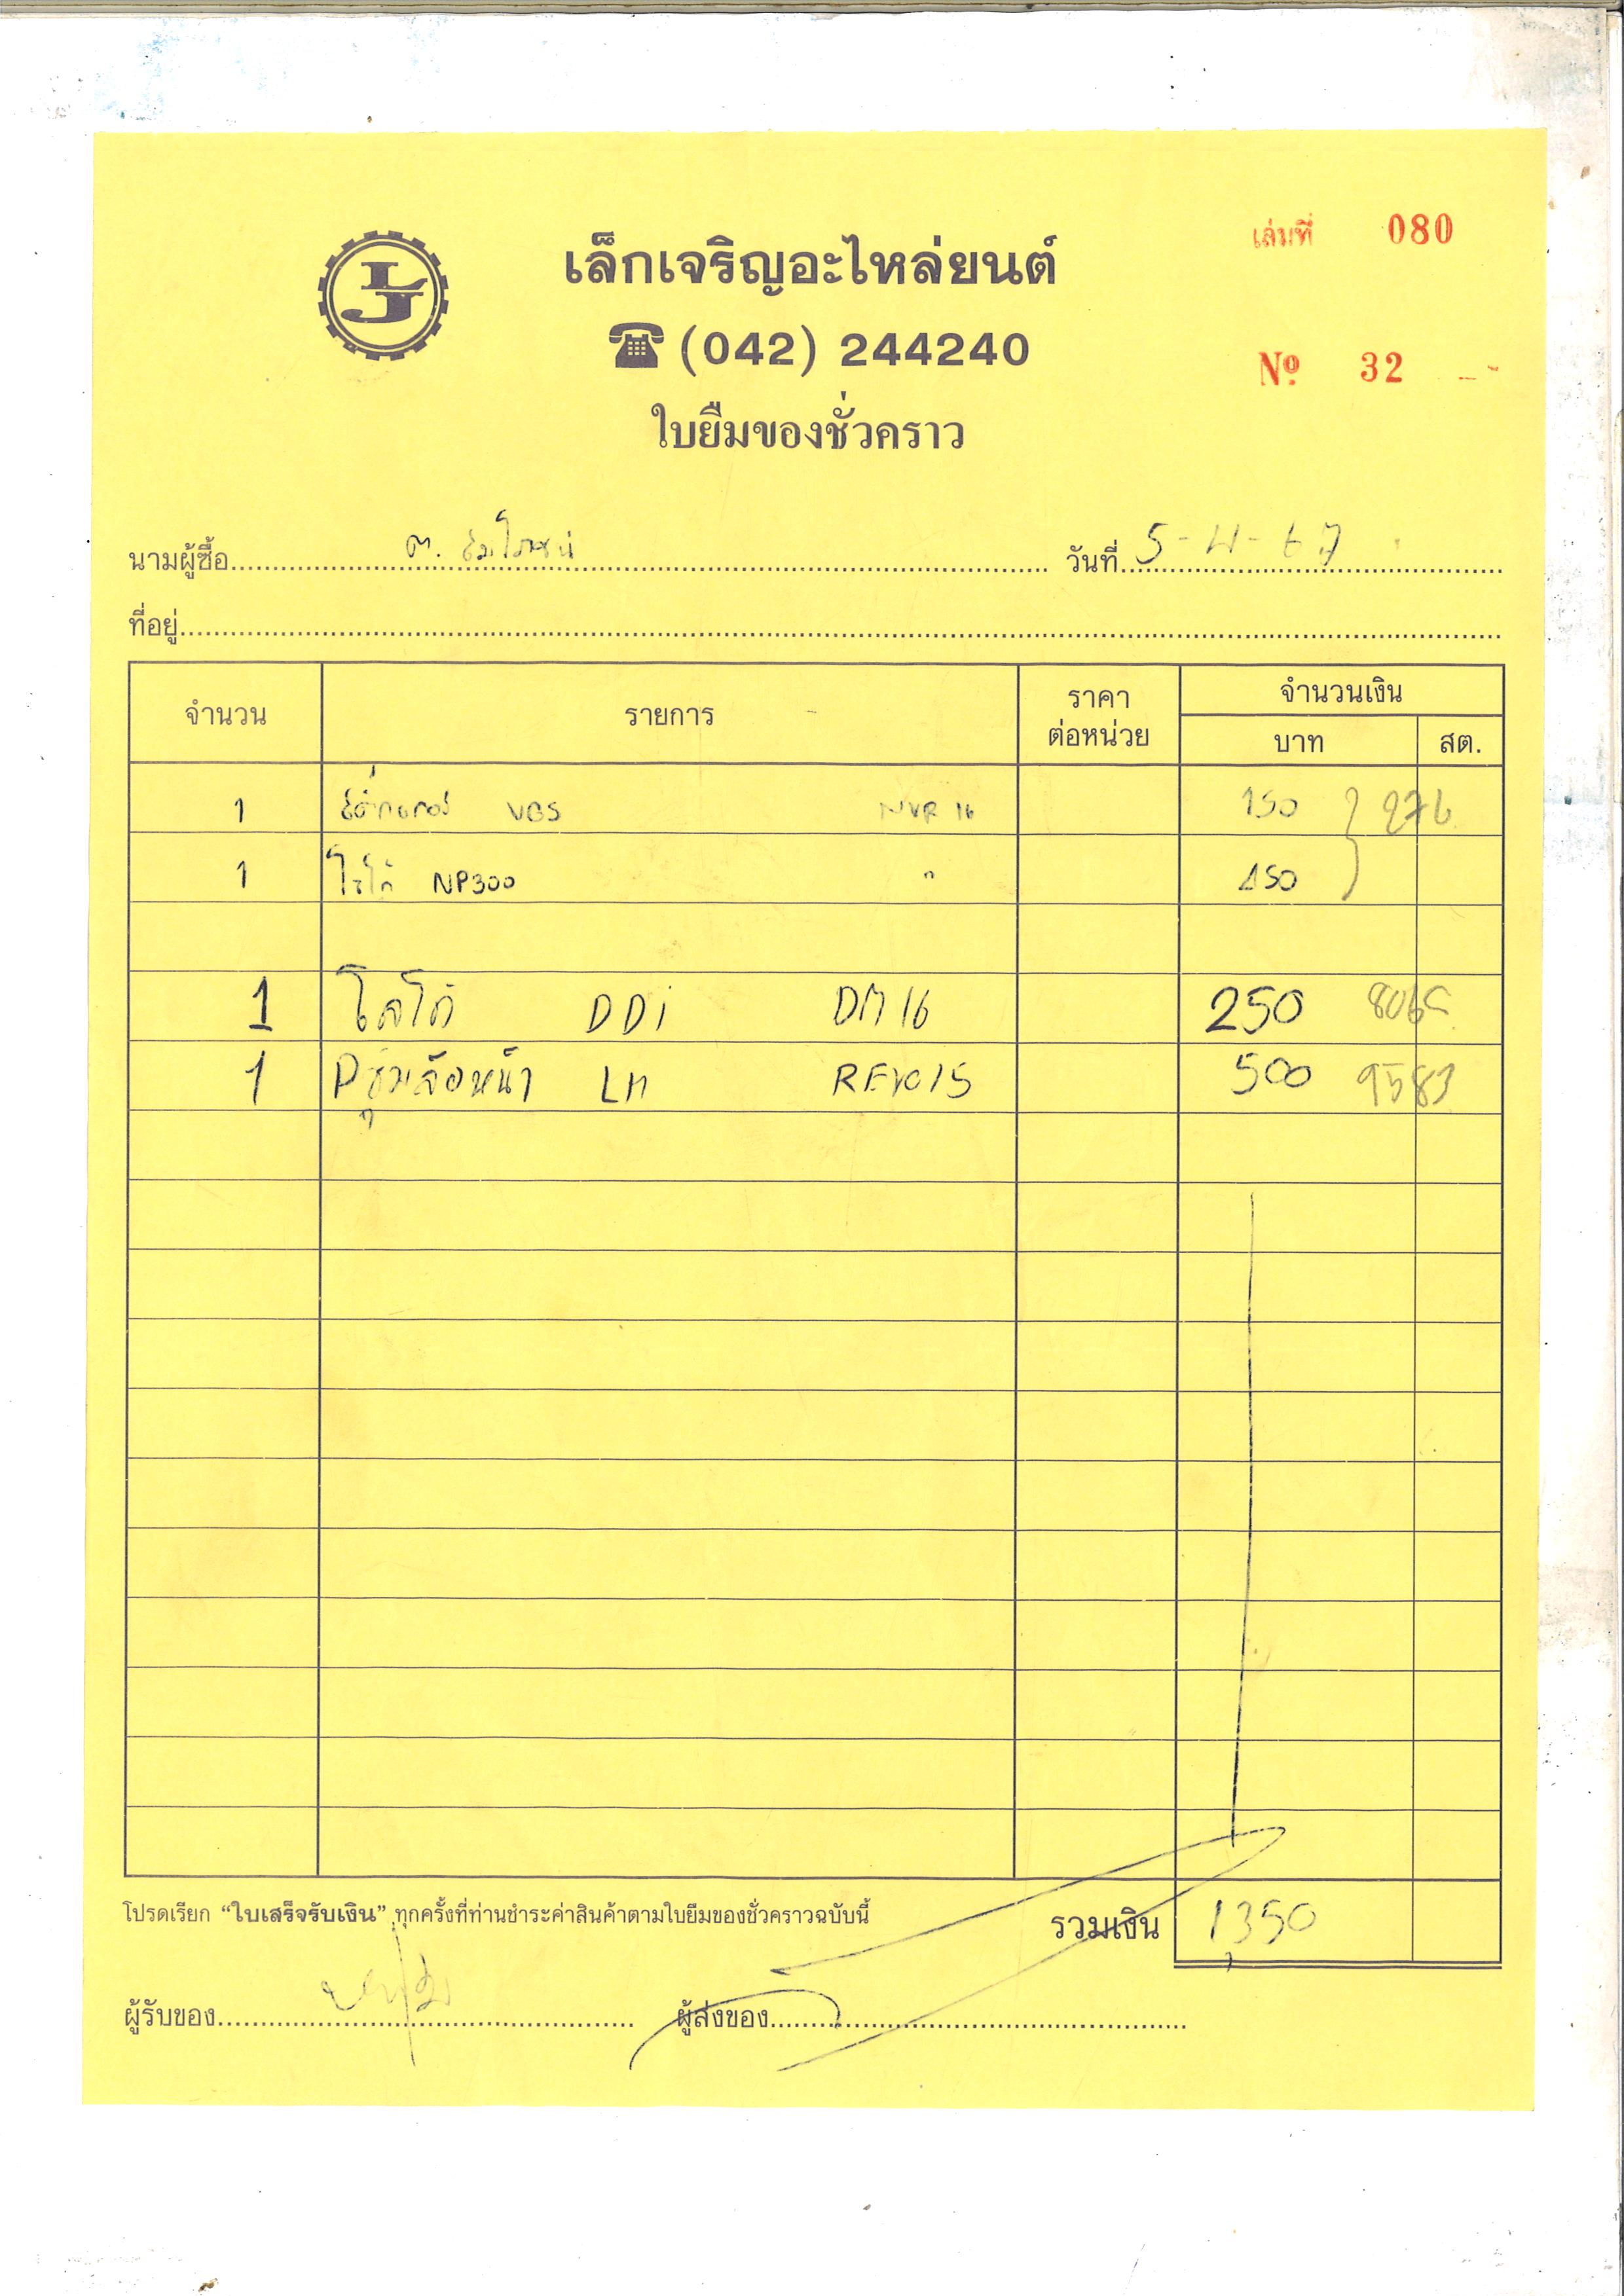 เล่มที่ 080
เล็กเจริญอะไหล่ยนต์
(042) 244240
Nº 32
ใบยืมของชั่วคราว
นามผู้ซื้อ ต. วันที่ 5-4-67
ที่อยู่
จำนวน รายการ ราคาต่อหน่วย จำนวนเงิน
บาท สต.
1 สติ๊กเกอร์ VGS NVR 16 150 276
1 โลโก้ NP300 " 450
1 โลโก้ DDi DM16 250
1 Pซุ้มล้อหน้า LH REVO15 500 9583
โปรดเรียก “ใบเสร็จรับเงิน” ทุกครั้งที่ท่านชำระค่าสินค้าตามใบยืมของชั่วคราวฉบับนี้ รวมเงิน 1,350
ผู้รับของ ผู้ส่งของ